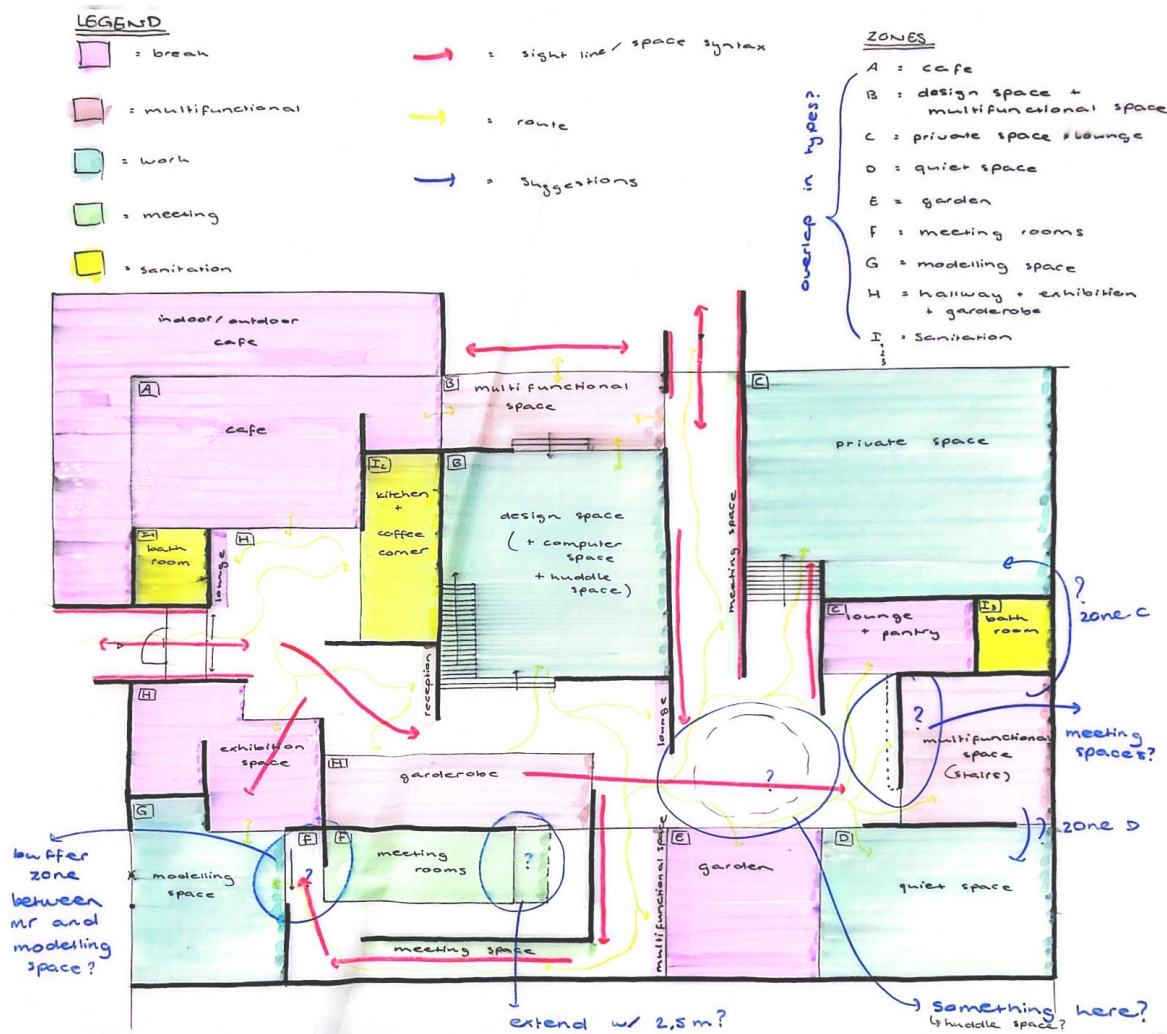 LEGEND
= break
= multifunctional
= work
= meeting
= sanitation
= sight line / space syntax
= route
= suggestions
ZONES
A = cafe
B = design space +
multifunctional space
C = private space lounge
D = quiet space
E = garden
F = meeting rooms
G = modelling space
H = hallway + exhibition
+ garderobe
I = Sanitation
1
2
3
overlap in types?
indoor/outdoor
cafe
A
cafe
B
multifunctional
space
C
private space
I2
kitchen
+
coffee
corner
B
design space
(+ computer
space
+ huddle
space)
meeting space
I1
bath
room
lounge
H
C
lounge
+ pantry
I3
bath
room
?
zone C
reception
lounge
H
exhibition
space
H
garderobe
?
?
multifunctional
space
(stairs)
meeting
spaces?
G
modelling
space
F
F
?
meeting
rooms
?
multifunctional space
E
garden
D
quiet space
?
zone D
buffer
zone
between
mr and
modelling
space?
meeting space
extend w/ 2,5m?
something here?
↳huddle space?